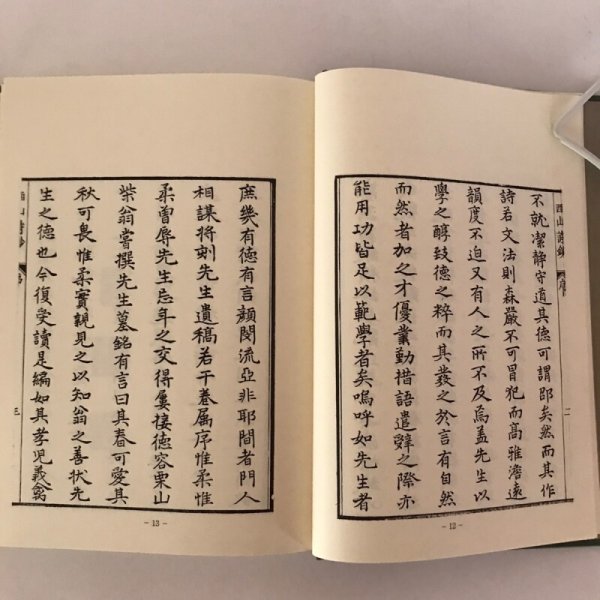 西山詩鈔 序 二
不就潔靜守道其德可謂邵矣然而其作
詩若文法則森嚴不可冒犯而高雅澹遠
韻度不迫又有人之所不及焉盖先生以
學之醇致德之粹而其發之於言有自然
而然者加之才優業勤措語遣辭之際亦
能用功皆足以範學者矣嗚呼如先生者
- 12 -
庶幾有德有言類閔流亞非耶間者門人
相謀將刻先生遺稿若干卷属序惟柔惟
柔曽辱先生忘年之交得屢接德容栗山
柴翁嘗撰先生墓銘有言曰其春可愛其
秋可畏惟柔實親見之以知翁之善状先
生之德也今復受讀是編如其孝児義禽
西山詩鈔 序 三
- 13 -